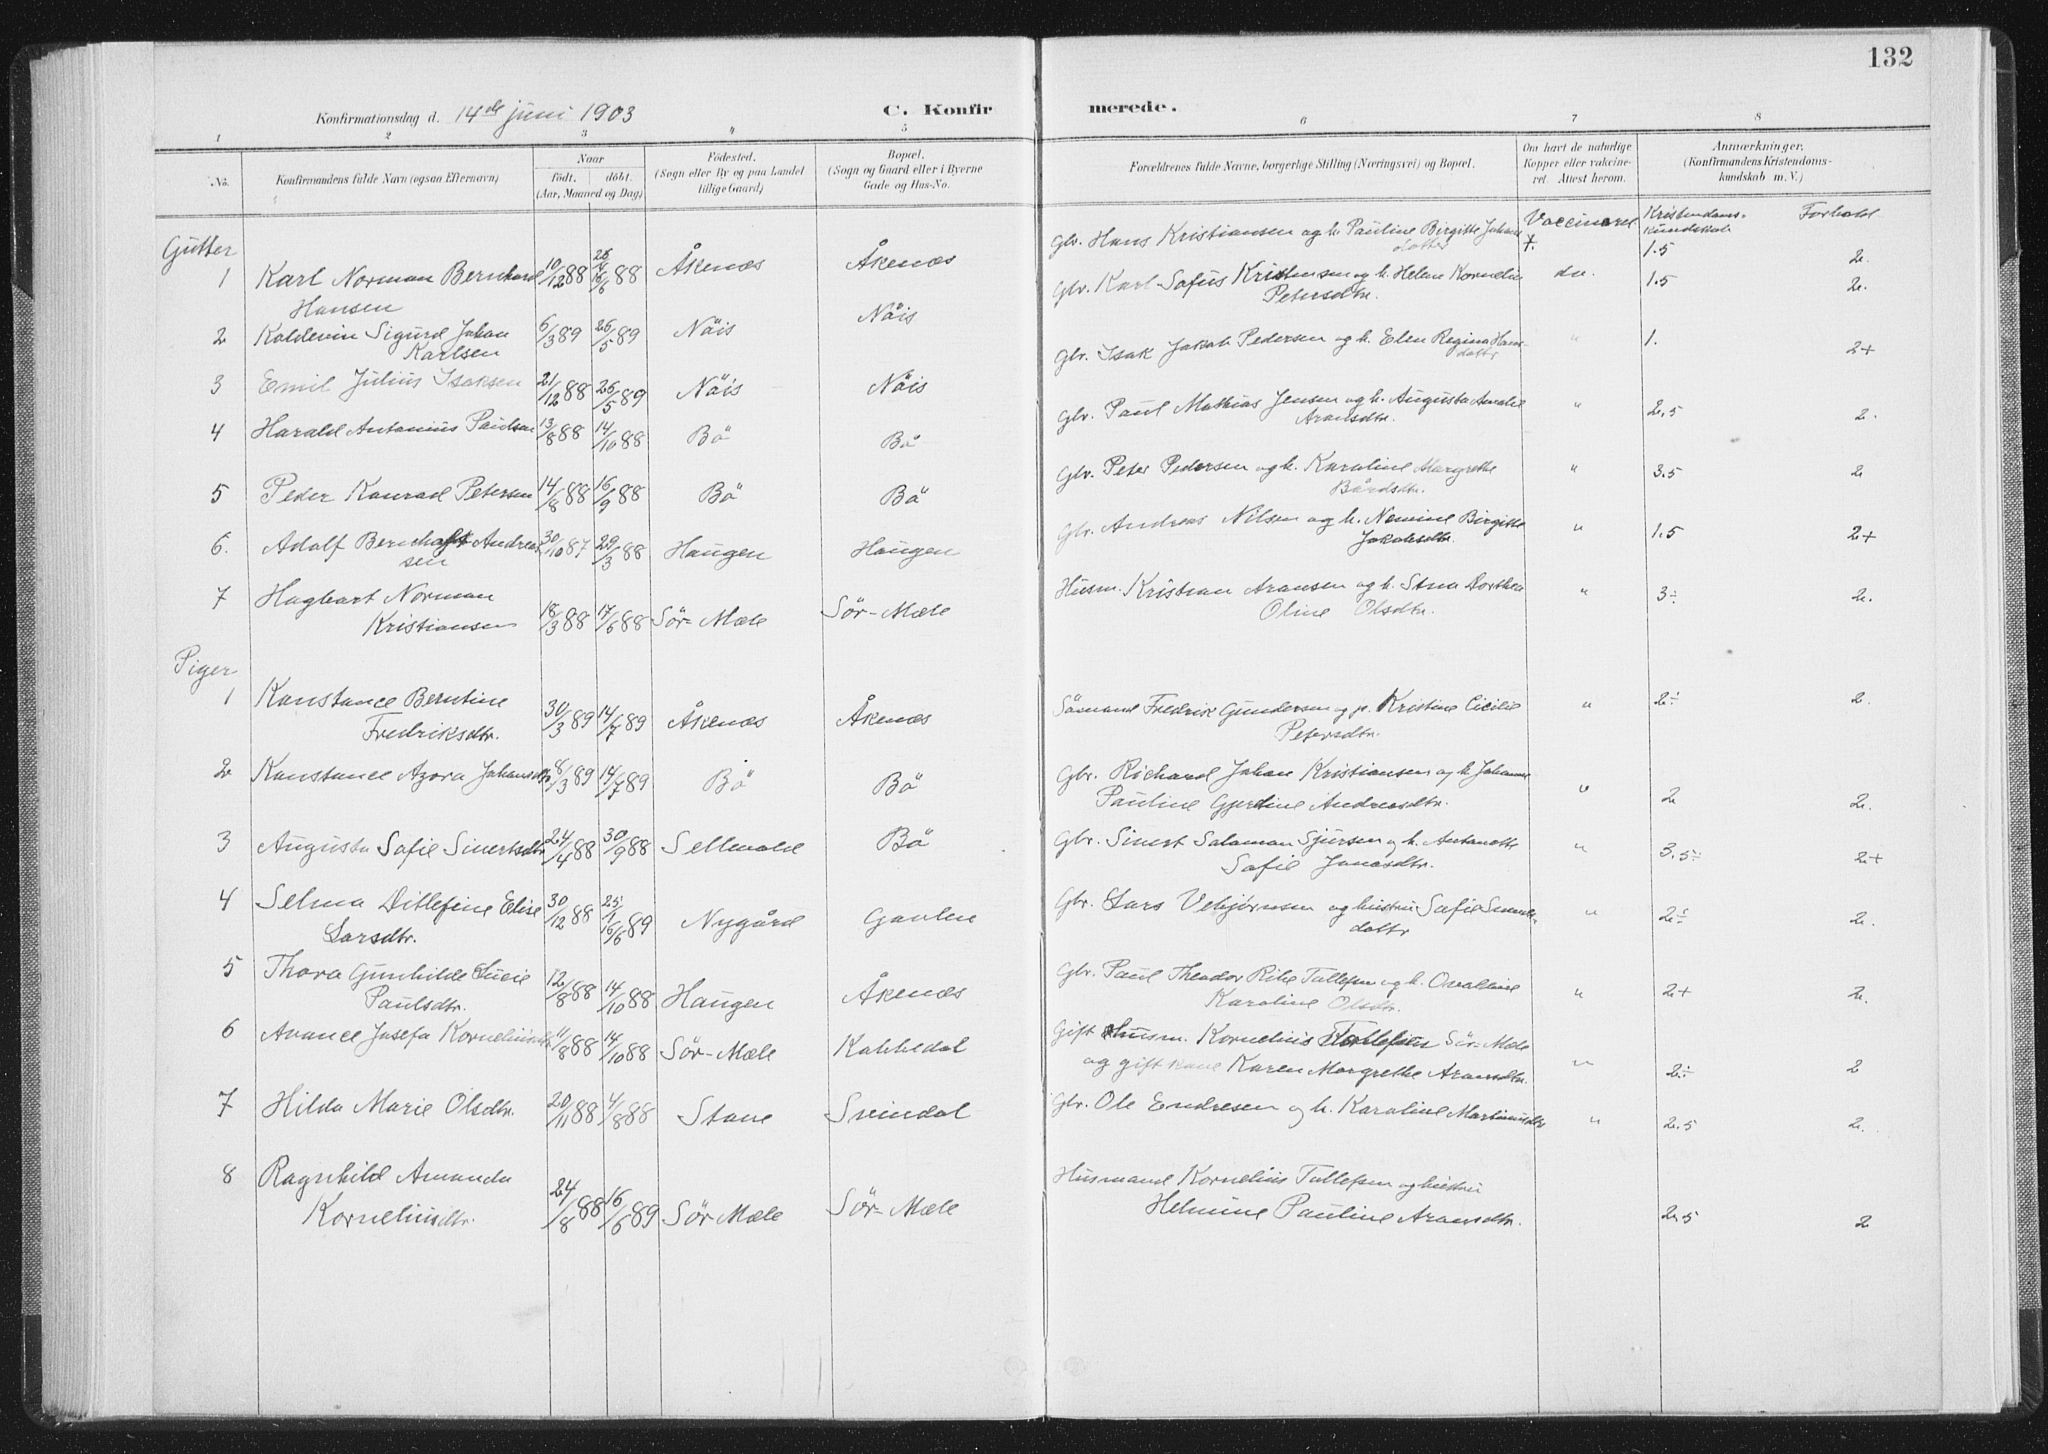 132
Konfirmationsdag d. 14de juni 1903 C. Konfirmerede.
1 2 3 " 5 6 7 8
No. Konfirmandens fulde Navn (ogsaa Efternavn) Naar født. døbt. (Aar, Maaned og Dag) Fødested. (Sogn eller By og paa Landet tillige Gaard) Bopæl. (Sogn og Gaard eller i Byerne Gade og Hus-No. Forældrenes fulde Navne, borgerlige Stilling (Næringsvei) og Bopæl. Om havt de naturlige Kopper eller vaccineret. Attest herom. Anmærkninger. (Konfirmandens Kristendomskundskab m. V.)
Gutter
Kristendoms-kundskab Forhold
1 Karl Norman Bernhard Hansen 10/12 88 16/6 88 Åkenæs Åkenæs Gbr. Hans Kristiansen og h. Pauline Birgitte Johansdotter Vaccineret +. 1.5 2.
2 Koldevin Sigurd Johan Karlsen 6/3 89 26/5 89 Nöis Nöis Gbr. Karl Sofus Kristensen og h. Helene Kornelie Petersdtr. do. 1.5 2.
3 Emil Julius Isaksen 21/12 88 26/5 89 Nöis Nöis Gbr. Isak Jakob Pedersen og h. Elen Regina Hansdottr " 1. 2+
4 Harald Antonius Paulsen 13/8 88 14/10 88 Bö Bö Gbr. Paul Mathias Jensen og h. Augusta Amalie Aronsdtr. " 2.5 2.
5 Peder Konrad Petersen 14/8 88 16/9 88 Bö Bö Gbr. Peter Pedersen og h. Karoline Margrethe Bårdsdtr. " 3.5 2
6. Adolf Bernhoft Andreassen 30/10 87 29/3 88 Haugen Haugen Gbr. Andreas Nilsen og h. Nemine Birgitte Jakobsdtr. " 1.5 2+
7 Hagbart Norman Kristiansen 18/3 88 17/6 88 Sör-Mæle Sör-Mæle Husm. Kristian Aronsen og h. Stina Dorthea Oline Olsdtr. " 3÷ 2.
Piger
1 Konstance Berntine Fredriksdtr. 30/3 89 14/7 89 Åkenæs Åkenæs Sömand Fredrik Gundersen og p. Kristine Cicilie Petersdtr. " 2÷ 2.
2 Konstance Azora Johansdtr. 8/3 89 14/7 89 Bö Bö Gbr. Richard Johan Kristiansen og h. Johanne Pauline Gjerdine Andreasdtr. " 2 2.
3 Augusta Sofie Sivertsdtr. 24/4 88 30/9 88 Sellevold Bö Gbr. Sivert Salamon Sjursen og h. Antonette Sofie Jonasdtr. " 3.5÷ 2+
4 Selma Ditlefine Elise Larsdtr. 30/12 88 16/6 89 Nygård Gavlen Gbr. Lars Vebjørnsen og hustru Sofie Sivertsdottr " 2÷ 2.
5 Thora Gunhilde Lucie Paulsdtr. 12/8 88 14/10 88 Haugen Åkenæs Gbr. Paul Theodor Rike Tollefsen og h. Ovaldine Karoline Olsdtr. " 2+ 2.
6 Avance Josefa Korneliusdtr. 11/8 88 14/10 88 Sör-Mæle Kobbedal Gift husm. Kornelius Tollefsen Sör-Mæle og gift kone Karen Margrethe Aronsdtr. " 2÷ 2
7 Hilda Marie Olsdtr. 20/11 88 4/8 88 Stave Svindal Gbr. Ole Endresen og h. Karoline Martinusdtr " 2.5 2.
8 Ragnhild Amanda Korneliusdtr. 24/8 88 16/6 89 Sör Mæle Sör-Mæle Husmand Kornelius Tollefsen og hustru Helmine Pauline Aronsdtr. 2.5 2